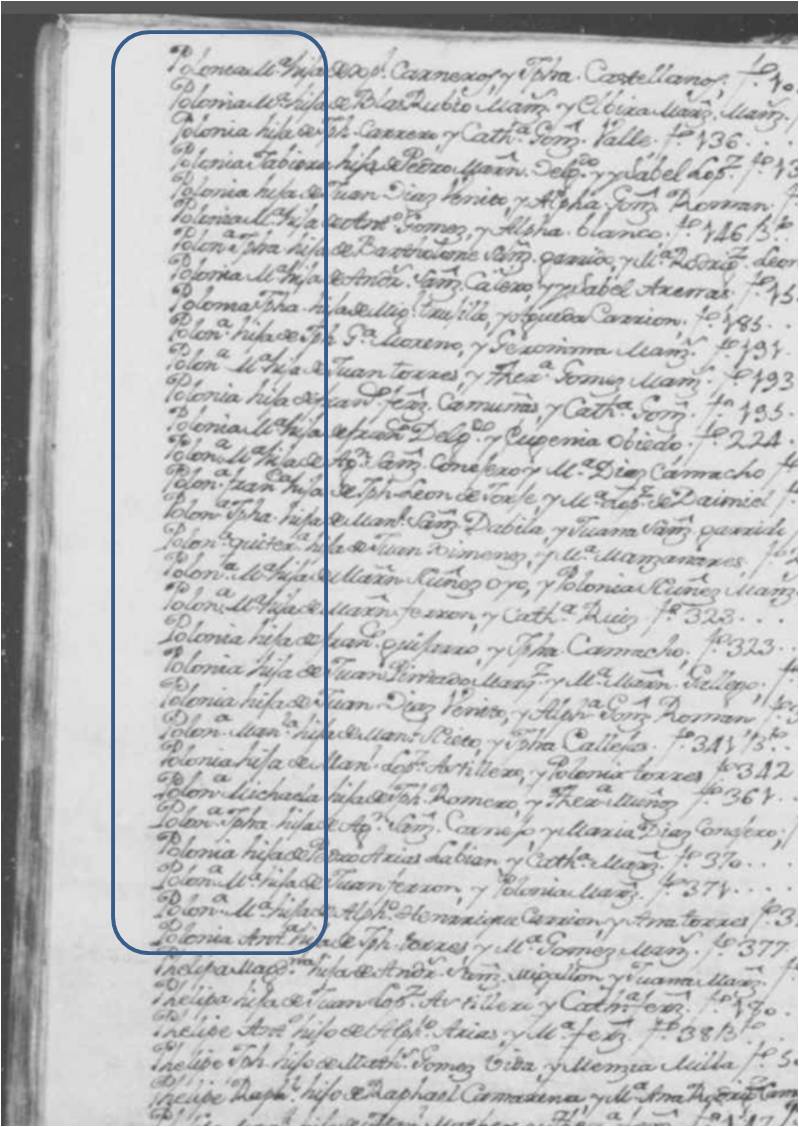 Polonia Mª hija de Xpl. Carneros, y Jpha. Castellanos. fº 10
Polonia Mª hija de Blas Rubio Mam̃. y Elbira Mam̃. Mam̃.
Polonia hija de Jph. Carrero, y Cathª Gom̃. Valle. fº 136
Polonia Fabiana hija de Pedro Marñ. Delgdo y Ysabel Lopz. fº 13
Polonia hija de Juan Diaz Venito, y Alpha Gom̃. Roman.
Polonia Mª hija de Antº Gomez, y Alpha. blanco. fº 146/3º
Polonª Jpha hija de Bartholome Sam̃. garrido, y Mª Rodrigz. Leon
Polonia Mª hija de Andr̃. Sam̃. Calero, y Ysabel Arenas. fº 15
Polonia Jpha. hija de Mig. trujillo, y Agueda Carrion. fº 185.
Polonª hija de Jph. Gª Moreno, y Geronima Mam̃. fº 191.
Polonª Mª hija de Juan torres, y Therª Gomez Mam̃. fº 193
Polonia hija de fran.co ferz̃. Camuñas, y Cathª Gom̃. fº 195.
Polonia Mª hija de fran.co Delg.do y Eugenia Obiedo. fº 224.
Polonª Mª hija de Agⁿ. Sam̃. Conejero y Mª Diaz Camacho fº
Polonª franca hija de Jph. Leon de Jorje y Mª Lopz. de Daimiel fº
Polonª Jpha. hija de Manl. Sam̃. Dabila, y Juana Sam̃. garrido
Polonª quiterª hija de Juan Ximenez, y Mª Manzanares. fº 2
Polonª Mª hija de Marñ. Nuñez oyo, y Polonia Nuñez Mam̃
Polonª Mª hija de Marñ ferron, y Cathª Ruiz. fº 323.
Polonia hija de fran.co guijarro, y Jpha Camacho. fº 323.
Polonia hija de Juan Pintado Marqz. y Mª Marñ. Gallego,
Polonia hija de Juan Diaz Venito, y Alphª Gom̃ Roman fº 3
Polonª Manla hija de Manl. Nieto, y Jpha Callejas. fº 341/3º
Polonia hija de Manl. Lopz. Artillero, y Polonia torres fº 342
Polonª Michaela hija de Jph. Romero, y Therª Muñoz fº 361.
Polonª Jpha. hija de Agⁿ. Sam̃. Cornejo y Maria Diaz Conejero,
Polonia hija de Pedro Arias Labian, y Cathª Mam̃. fº 370.
Polonª Mª hija de Juan ferron, y Polonia Mam̃. fº 371.
Polonª Mª hija de Alphº. Henrrique Carrion, y Ana torres fº 3
Polonia Antª hija de Jph. torres, y Mª Gomez Mam̃. fº 377
Phelipa Magdna hija de Andr̃. Sam̃. y Juana Mam̃.
Phelipa hija de Juan Lopz. Artillero y Cathª ferz̃. fº 180.
Phelipe Antº hijo de Alphº. Arias, y Mª ferz̃. fº 38/3º
Phelipe Jph. hijo de Mathˢ. Gomez Vita y Menzia Milla fº 5
Phelipe Raphl. hijo de Raphael Camarena y Mª Ana Rodrigz Cam